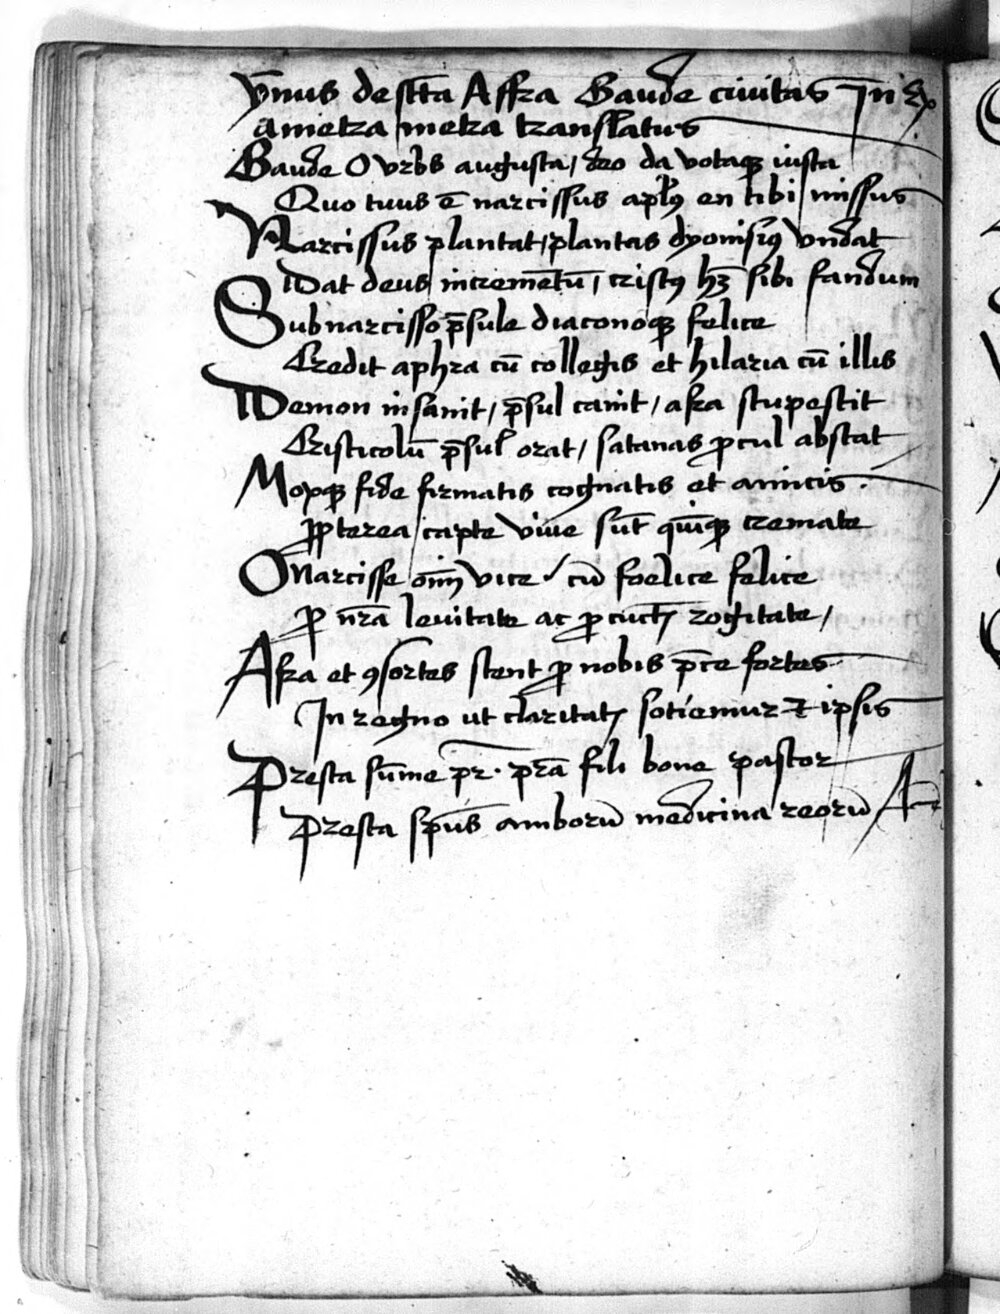 Ym̄nus de sct̄a Affra Gaude ciuitas In Ex
ametra metra translatus
Gaude O vrbs augusta / deo da votaq; iusta
Quo tuus ē narcissus apl̄us en tibi missus
Narcissus plantat / plantas dyonisiꝰ vndat
Dat deus incremētū / cristꝰ hꝫ sibi fandum
Sub narcisso p̄sule diaconoq; felice
Credit aphra cū collegis et hilaria cū illis
Demon insanit / p̄sul canit / afra stupescit
Cristicolū p̄sul orat / satanas ꝓcul abstat
Moxq; fide firmatis cognatis et amicis .
ꝓpterea capte viue sūt qui̅q; cremate
O Narcisse vice / cū foelice felice
ꝓ nr̄a leuitate ac rogitate /
Afra et ꝯsortes stent ꝓ nobis p̄ce fortes
In regno ut claritatꝭ sotiemur ⁊ ipsis
Presta sūme pr̄ . pr̄a fili bone pastor
Presta sp̄us amborū medicina reorū Amē